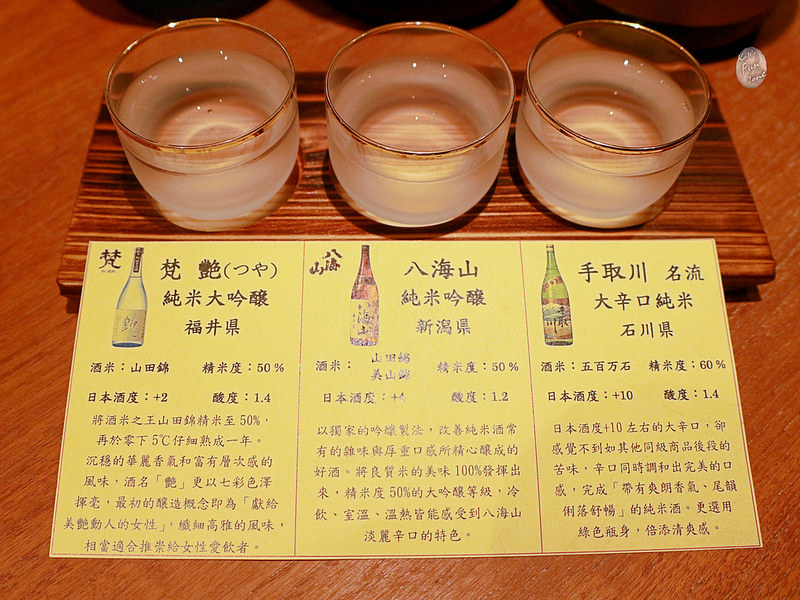 梵
梵 艶(つや)
純米大吟醸
福井県
酒米：山田錦 精米度：50%
日本酒度：+2 酸度：1.4
將酒米之王山田錦精米至50%，
再於零下5℃仔細熟成一年。
沉穩的華麗香氣和富有層次感的
風味，酒名「艷」更以七彩色澤
揮毫，最初的釀造概念即為「獻給
美艷動人的女性」，纖細高雅的風味，
相當適合推崇給女性愛飲者。
八海山
八海山
純米吟醸
新潟県
酒米：山田錦
美山錦
精米度：50%
日本酒度：+4 酸度：1.2
以獨家的吟釀製法，改善純米酒常
有的雜味與厚重口感所精心釀成的
好酒。將良質米的美味100%發揮出
來，精米度50%的大吟釀等級，冷
飲、室溫、溫熱皆能感受到八海山
淡麗辛口的特色。
手取川 名流
大辛口純米
石川県
酒米：五百万石 精米度：60%
日本酒度：+10 酸度：1.4
日本酒度+10左右的大辛口，卻
感覺不到如其他同級商品後段的
苦味，辛口同時調和出完美的口
感，完成「帶有爽朗香氣、尾韻
俐落舒暢」的純米酒。更選用
綠色瓶身，倍添清爽感。